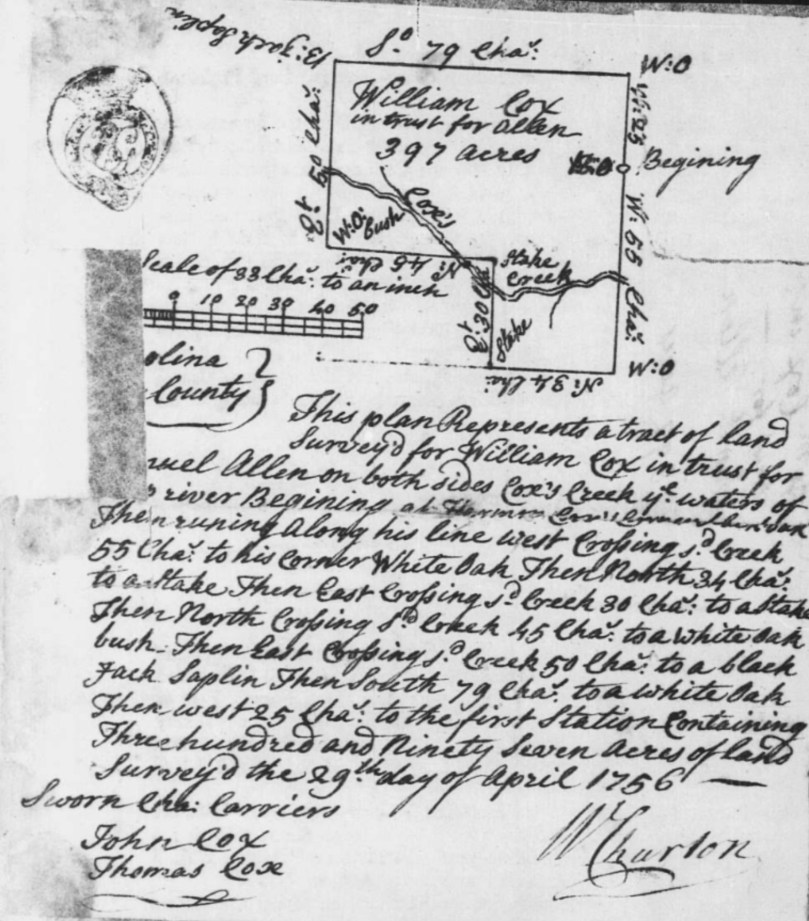 B: Jack Saplin
So. 79 Cha:
W:O
William Cox
in trust for allen
397 acres
Et 50 Cha:
W: 25
Begining
W: 55 Cha:
Cox's
Creek
W:O: bush
No: 45 Cha:
Stake
Et 30 Cha:
Stake
N: 34 Cha:
W:O
Scale of 33 Cha: to an inch
0 10 20 30 40 50
olina
County
This plan Represents a tract of land
Survey'd for William Cox in trust for
muel Allen on both sides Cox's Creek ye waters of
river Begining at
Then runing Along his line west Crossing sd Creek
55 Cha: to his Corner White Oak Then North 34 Cha:
to a stake Then East Crossing sd Creek 30 Cha: to a stake
Then North Crossing sd Creek 45 Cha: to a white Oak
bush. Then East Crossing sd Creek 50 Cha: to a black
Jack Saplin Then South 79 Cha: to a white Oak
Then west 25 Cha: to the first Station Containing
Three hundred and Ninety Seven Acres of land
Survey'd the 29th day of April 1756
Sworn Cha: Carriers
John Cox
Thomas Cox
W Churton